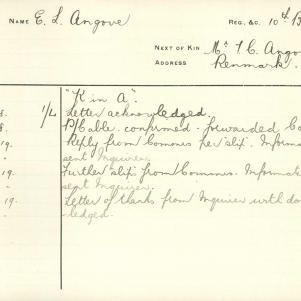 NAME E. L. Angove REG. &C. 10th B
NEXT OF KIN Mr T C. Ango
ADDRESS Renmark.
"K in A".
8. 1/L Letter acknowledged.
8. P/Cable confirmed - forwarded Co
19. Reply from Commrs per slip. Informat
" sent Inquirer.
19. Further slip from Commrs. Informat
" sent Inquirer.
19. Letter of thanks from Inquirer
-ledged.